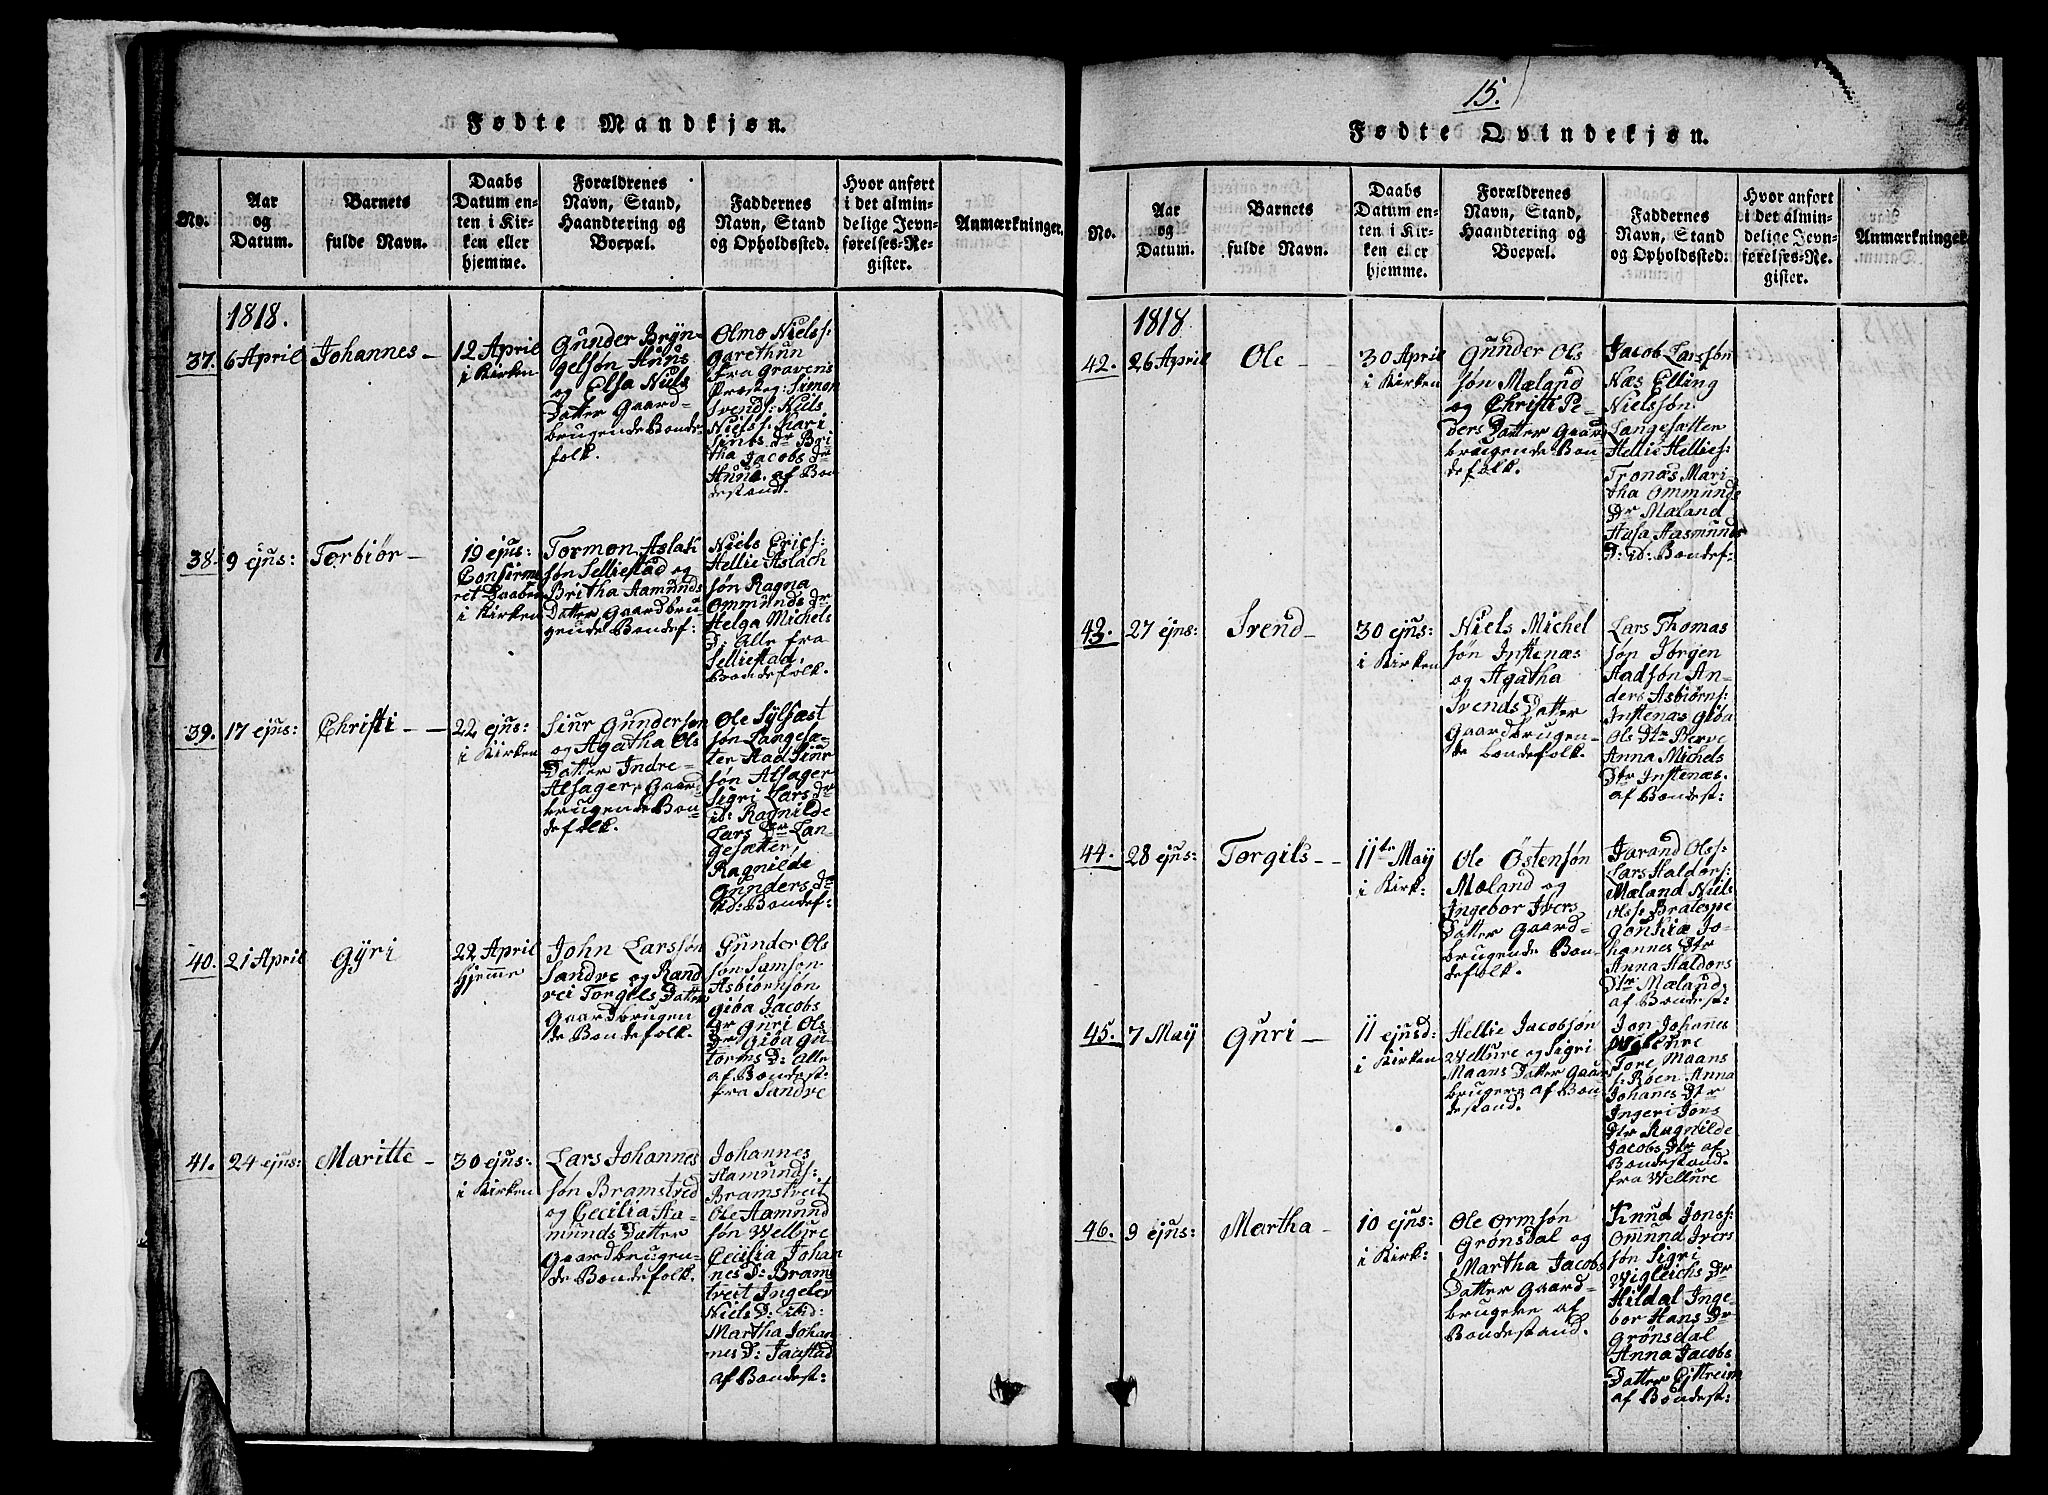 15.
Fødte Mandkjøn.
No.
Aar
og
Datum.
Barnets
fulde Navn.
Daabs
Datum en-
ten i Kir-
ken eller
hjemme.
Forældrenes
Navn, Stand,
Haandtering og
Boepæl.
Faddernes
Navn, Stand
og Opholdssted.
Hvor anført
i det almin-
delige Jevn-
førelses-Re-
gister.
Anmærkninger.
1818.
37.
6 April
Johannes
12 April
i Kirken
Gunder Bryn-
gelsøn
og Elsa Niels
Datter Gaard-
brugende Bonde-
folk.
Olmo Niels:
fra Gravens
Præsteg: Simon
Svends: Niels
Niels: Kari
tha Jacobs Dr
af Bon
destand.
38.
9 ejus:
Torbiør
19 ejus:
i Kirken
Tormon Aslak
søn Selliestad og
Britha Aamunds
Datter Gaardbru-
gende Bondef:
Niels Erics:
Hellie Aslach
søn Ragna
Ommunds Dr
Helga Michels
D: Alle fra
Selliestad,
Bondefolk.
39.
17 ejus:
Christi
22 ejus:
i Kirken
Siur Gunderson
og Agatha Ols
Datter Indre-
Alsager, Gaard
brugende Bon-
defolk.
Ole Sylfæst
søn Langesæ-
ter Aad Siur
søn Alsager
Sigri Lars Dr
id: Ragnilde
Lars Dr Lan-
gesætter,
Ragnilde
Gunders Dr
id: Bondef:
40.
21 April
Gÿri
22 April
Hjemme
John Larssøn
Sandre og Rand
vei Torgils Datter
Gaardbrugen
de Bondefolk.
Gunder Ols
søn Samson
Asbiørnsøn
Giøa Jacobs
Dr Guri Ols
Dr Giøa Gu-
torms D: Alle
af Bondest:
fra Sandre
41.
24 ejus:
Maritte
30 ejus:
i Kirken
Lars Johannes
søn Bramstred
og Cecilia Aa-
munds Datter
Gaardbrugen-
de Bondefolk.
Johannes
Aamunds:
Bramstreit
Ole Aamund
søn Wellure
Cecilia Johan
nes D: Brams
treit Ingeler
Niels D: ibid:
Martha Johan
nes D:
af Bondest:
Fødte Qvindekjøn.
No.
Aar
og
Datum.
Barnets
fulde Navn.
Daabs
Datum en-
ten i Kir-
ken eller
hjemme.
Forældrenes
Navn, Stand,
Haandtering og
Boepæl.
Faddernes
Navn, Stand
og Opholdssted.
Hvor anført
i det almin-
delige Jevn-
førelses-Re-
gister.
Anmærkninger.
1818
42.
26 April
Ole
30 April
i Kirken
Gunder Ols
søn Mæland
og Christi Pe-
ders Datter Gaard
brugende Bon-
defolk.
Jacob Larssøn
Næs Elling
Nielssøn
Langesæten
Hellie Hellies:
Tronæs Mari
tha Ommunds
Dr Mæland
Aasmunds
D: id: Bondef:
43.
27 ejus:
Svend
30 ejus:
i Kirken
Niels Michel
søn Instenæs
og Agatha
Svends Datter
Gaardbrugen-
de bondefolk.
Lars Thomas
søn Jørgen
Aadsøn An-
ders Asbiørns:
Instenæs Giøa
Ols Dtr Berve
Anna Michels
Dtr Instenæs.
af Bondest:
44.
28 ejus:
Torgils
11te May
i Kirk:
Ole Östensøn
Mæland og
Ingebor Ivers
Datter Gaard-
brugende Bon-
defolk.
Jarand Olss:
Lars Haldors:
Mæland Niels
Olss:
Jo-
hannes Dtr
Anna Haldors
Dtr Mæland,
af Bondest:
45.
7 May
Guri
11 ejusd
i Kirken
Hellie Jacobsøn
Wellure og Sigri
Maans Datter Gaard
brugere af Bon-
destand.
Jon Johannes
Wellure
Tore Maans
s: Røen Anna
Johannes Dtr
Ingeri Jons
Dtr Ragnilde
Jacobs Dtr af
Bondestand
fra Wellure
46.
9 ejus:
Martha
10 ejus:
i Kirk:
Ole Ormsøn
Grønsdal og
Martha Jacobs
Datter Gaard-
brugere af
Bondestand.
Knud Jons:
Omund Ivers
søn Sigri
Vigleichs Dr
Hildal Inge-
bor Hans Dr
Grønsdal
Anna Jacobs
Datter Eittreim
af Bondest: